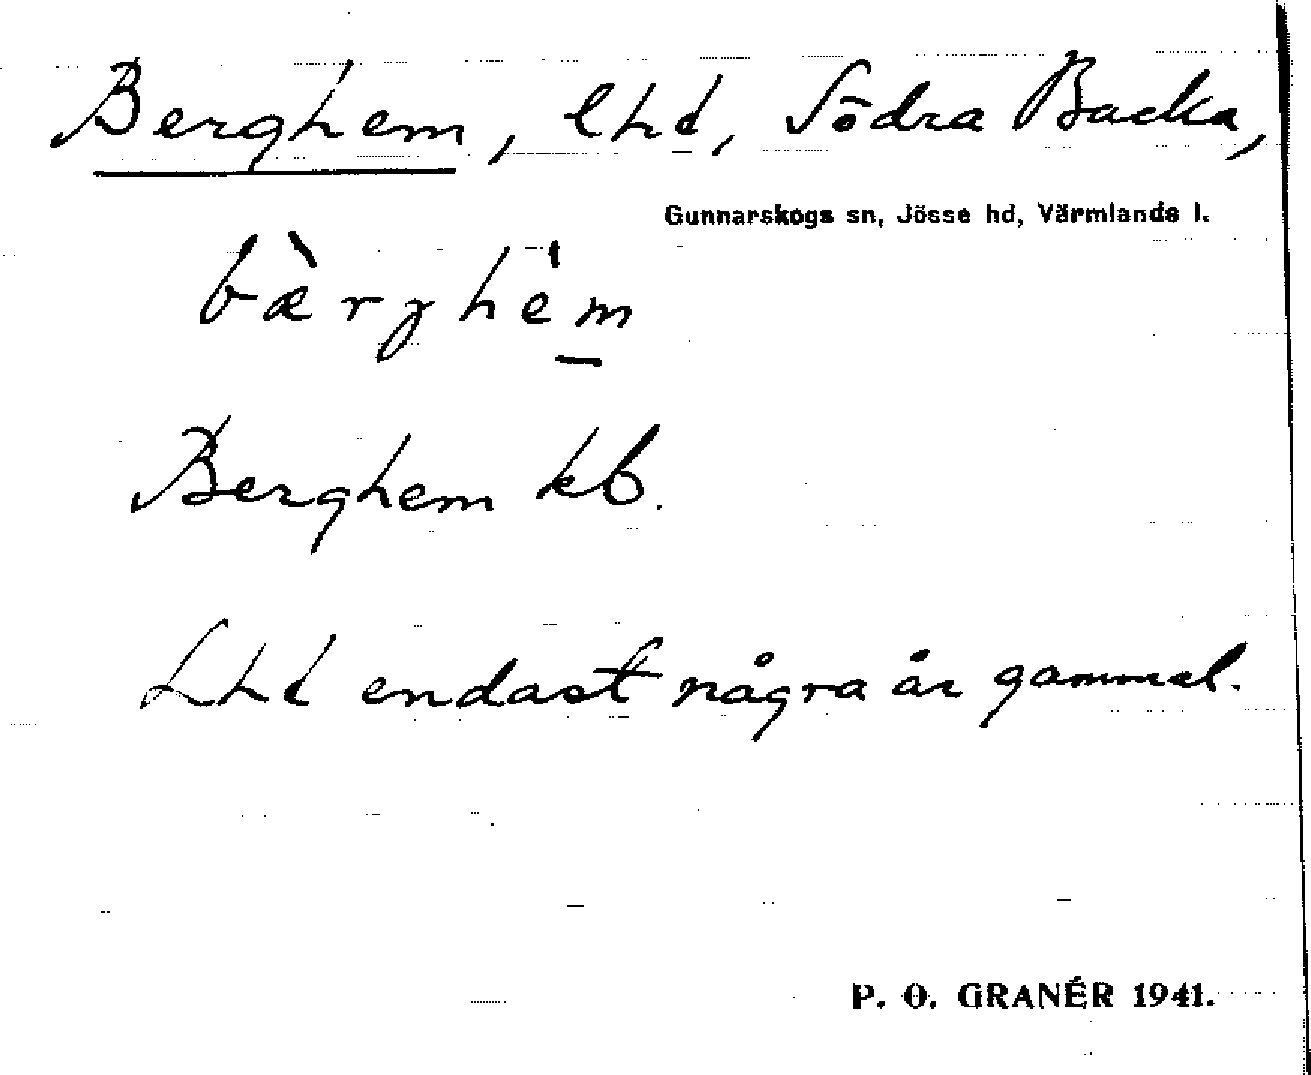 Berghem, lhd, Södra Backa,
Gunnarskogs sn, Jösse hd, Värmlands l.
bæ̀rghem
Berghem kb.
Lhd endast några år gammal.
P. O. GRANÉR 1941.